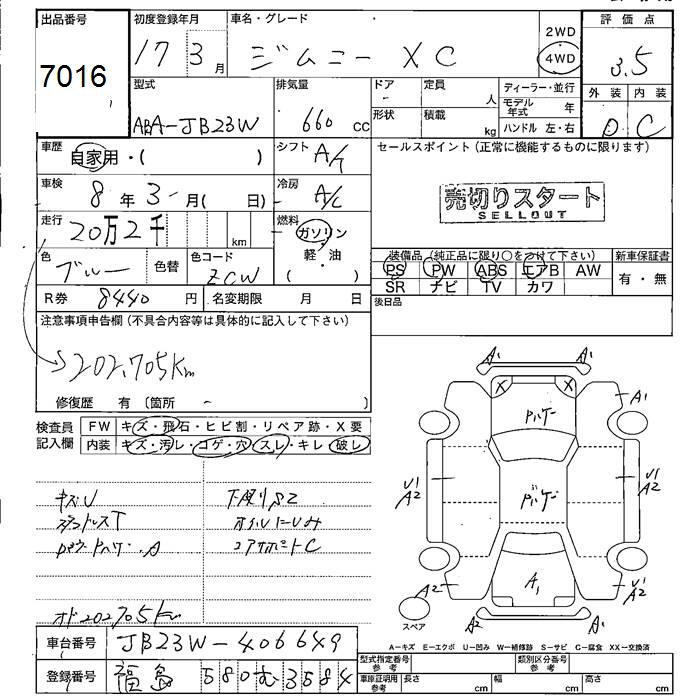 出品番号
7016
初度登録年月
17 3月
車名・グレード
ジムニー XC
2WD
4WD
評価点
3.5
型式
ABA-JB23W
排気量
660 cc
ドア
定員
人
形状
積載
kg
ディーラー・並行
モデル年式 年
ハンドル 左・右
外装 内装
D C
車歴
自家用・( )
シフト A/T
セールスポイント(正常に機能するものに限ります)
売切りスタート
SELLOUT
車検
8年3月( 日)
冷房 A/C
走行
20万2千 km
燃料
ガソリン
軽・油
( )
色
ブルー
色替
色コード
ZCW
装備品(純正品に限り○をつけて下さい)
新車保証書
PS PW ABS エアB AW
有・無
SR ナビ TV カワ
R券 8440円
名変期限 月 日
後日品
注意事項申告欄(不具合内容等は具体的に記入して下さい)
202,705Km
修復歴 有〔箇所 〕
検査員
記入欄
FW キズ・飛石・ヒビ割・リペア跡・X要
内装 キズ・汚レ・コゲ・穴・スレ・キレ・破レ
キズU
下廻りS2
オイルにじみ
コアサポートC
オド202705Km
A1 A1
X X
A1
U1
A2
U1
A2
A1
A2
U1
A2
A2 A1
スペア
A-キズ E-エクボ U-凹み W-補修跡 S-サビ C-腐食 XX-交換済
車台番号 JB23W-406649
登録番号 福島 580 む 3584
型式指定番号
参考
類別区分番号
参考
車庫証明用
参考
長さ cm
幅 cm
高さ cm